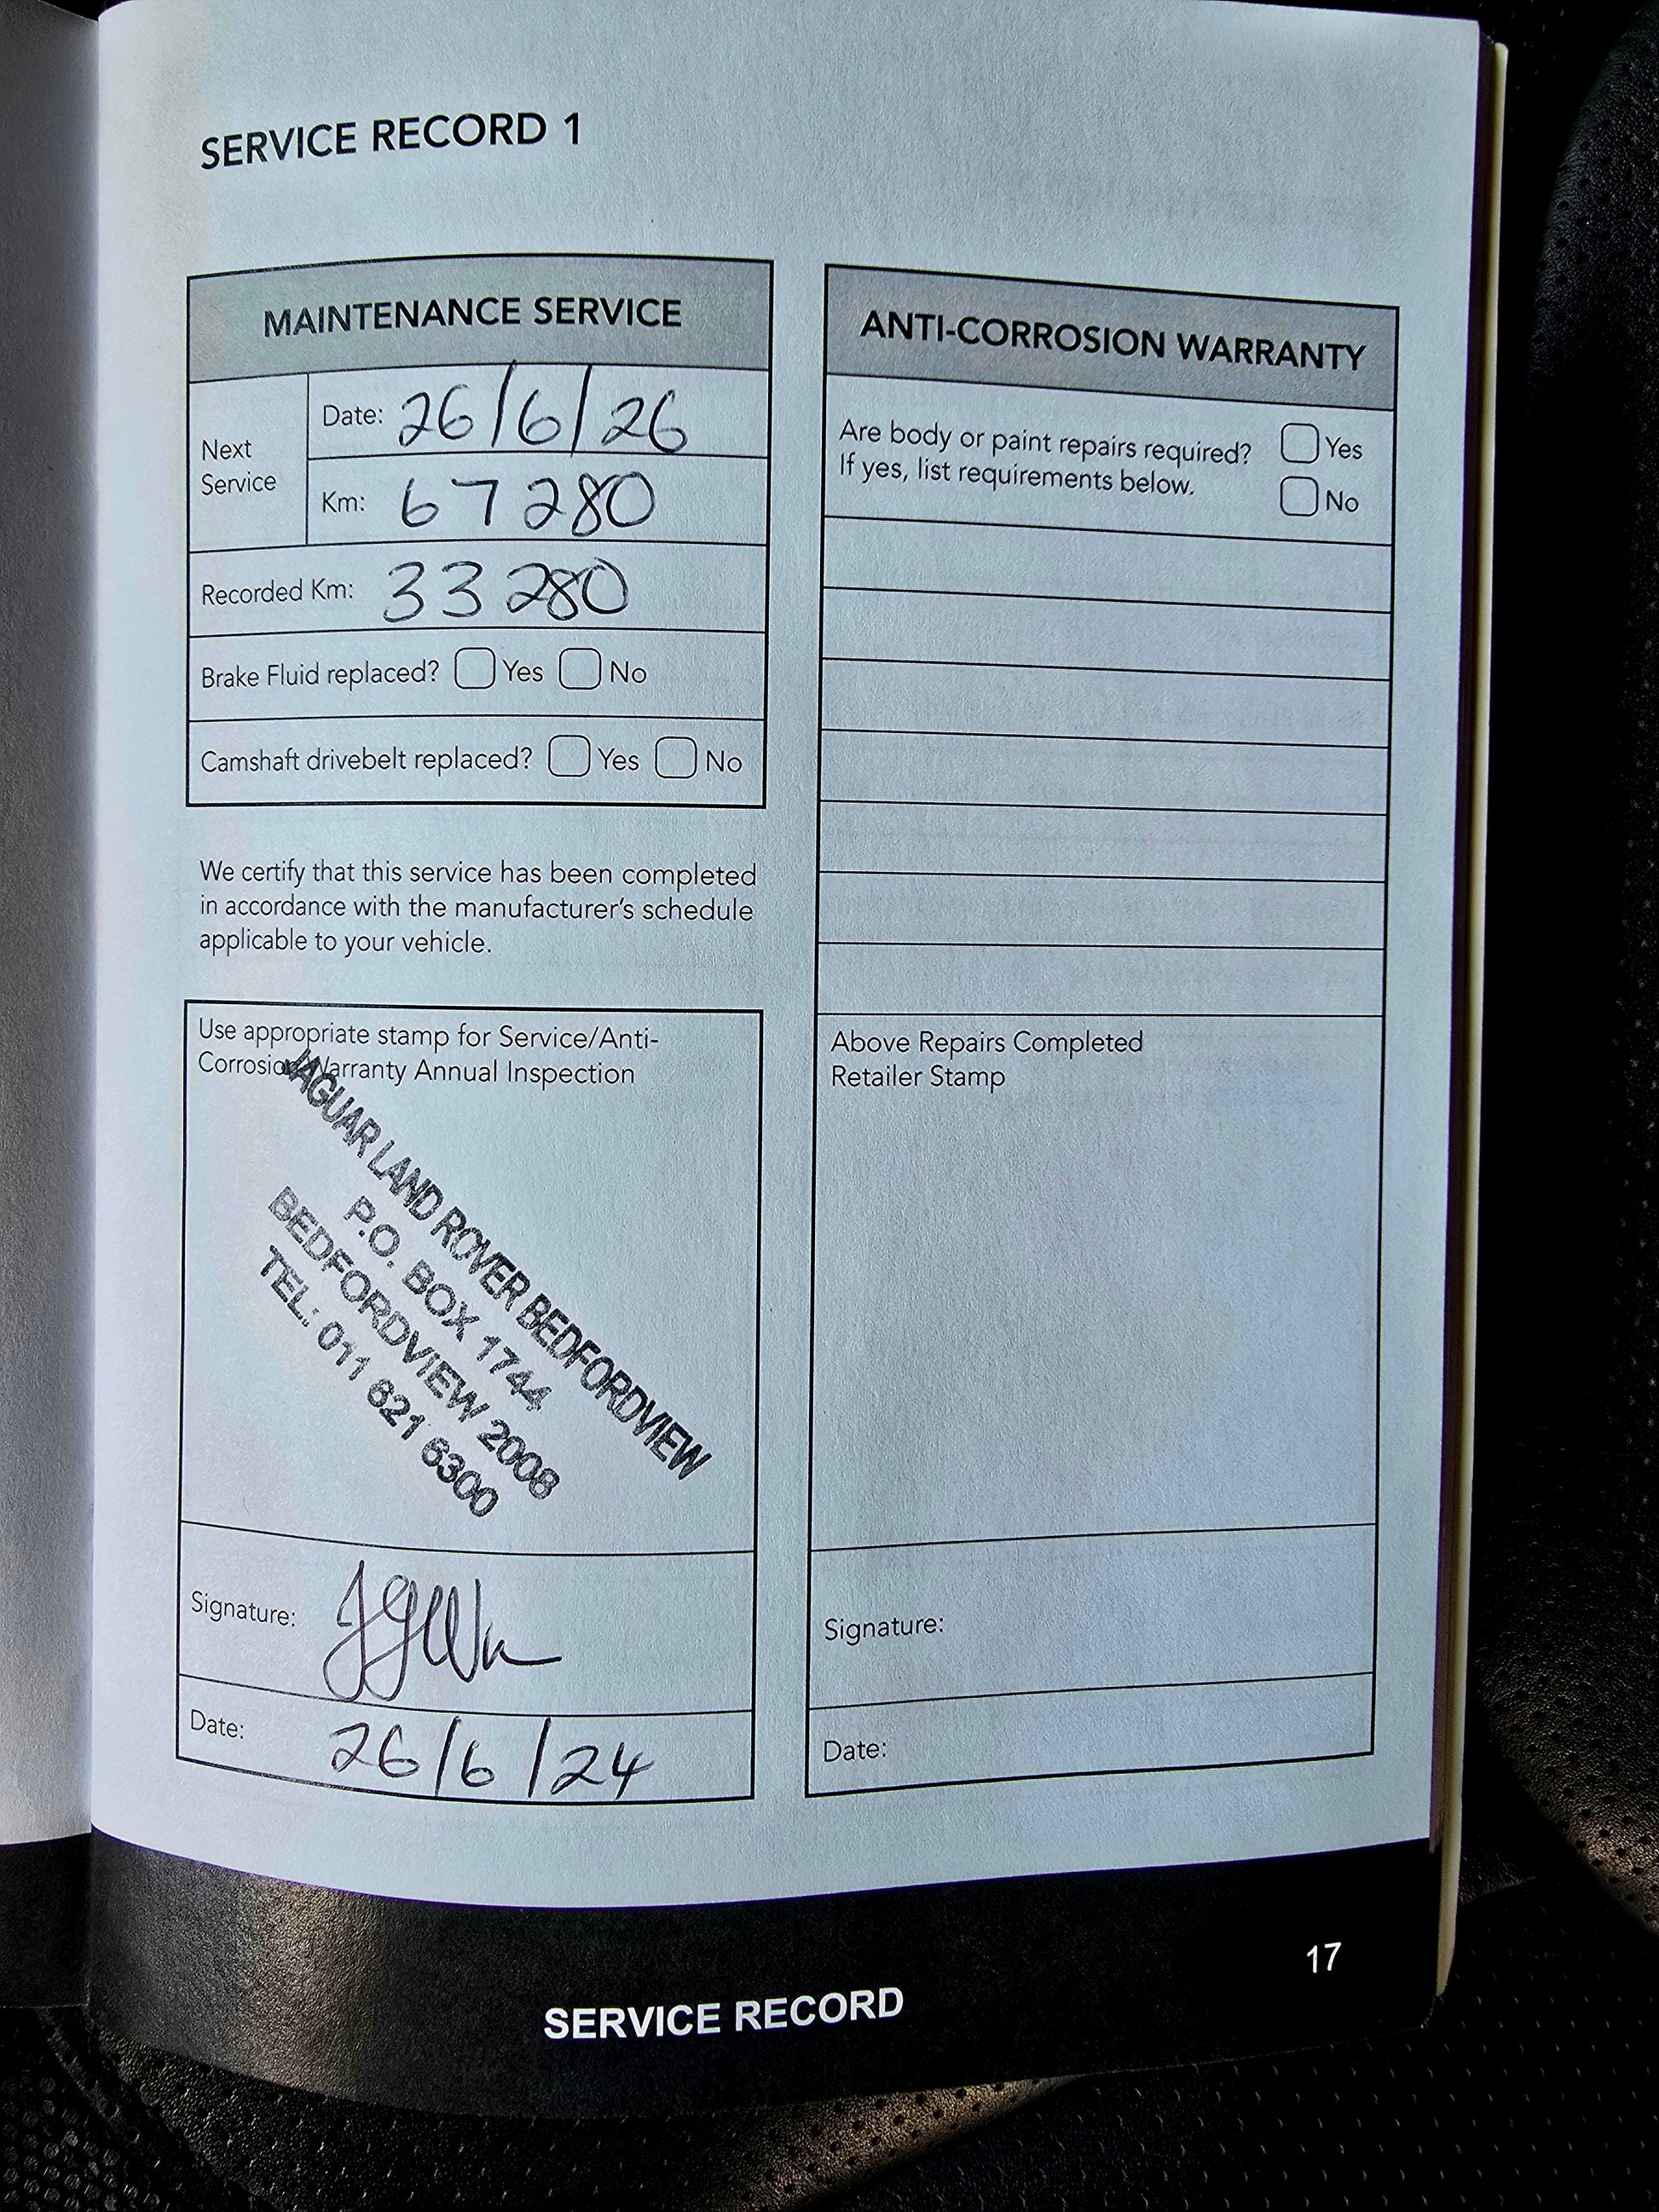 SERVICE RECORD 1
MAINTENANCE SERVICE
Next
Service
Date: 26/6/26
Km: 67280
Recorded Km: 33280
Brake Fluid replaced? Yes No
Camshaft drivebelt replaced? Yes No
We certify that this service has been completed
in accordance with the manufacturer's schedule
applicable to your vehicle.
Use appropriate stamp for Service/Anti-
Corrosion Warranty Annual Inspection
JAGUAR LAND ROVER BEDFORDVIEW
P.O. BOX 1744
BEDFORDVIEW 2008
TEL: 011 621 6300
Signature:
Date: 26/6/24
ANTI-CORROSION WARRANTY
Are body or paint repairs required? Yes
If yes, list requirements below. No
Above Repairs Completed
Retailer Stamp
Signature:
Date:
17
SERVICE RECORD